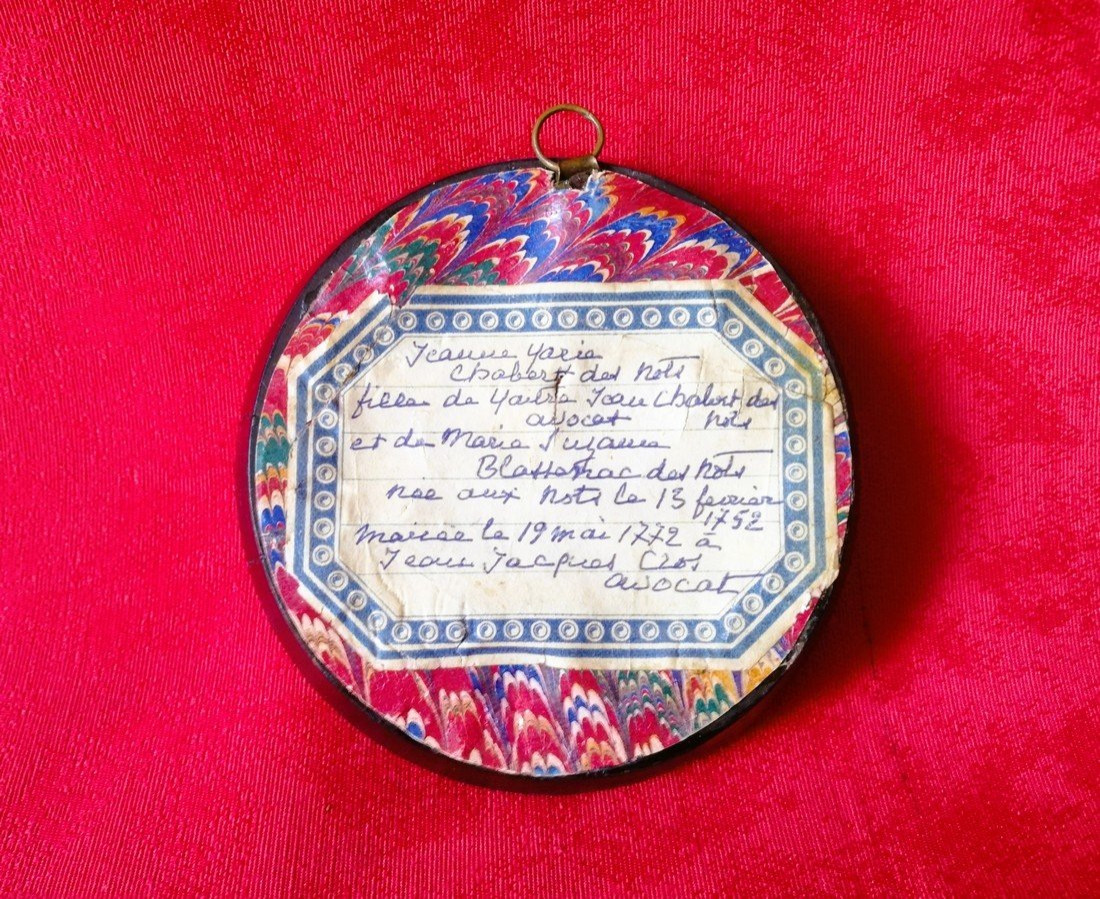 Jeanne Marie
Chabert des Nots
fille de Maitre Jean Chabert des
avocat Nots
et de Marie Suzanne
des Nots
née aux Nots le 13 fevrier
1752
mariée le 19 mai 1772 à
Jean Jacques Cros
avocat